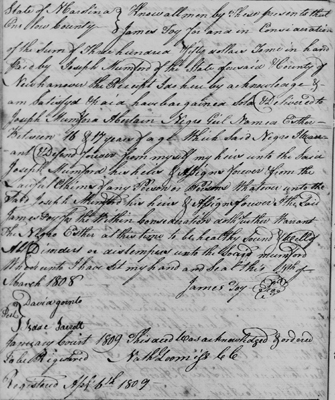 State of N Carolina } Know all men by these presents that
Onslow County } James Foy for and in Consideration
of the Sum of Three hundred fifty dollars to me in hand
by Joseph Mumford of the State & County
the Receipt is hereby acknowledge &
am Satisfyd & paid have bargained Sold & Delivered to
Joseph Mumford a Certain Negro Girl Named Esther
Between 16 & 17 years of age Which Said Negro
and Defend forever from my self my heirs unto the Said
Joseph Mumford his heirs & Assigns forever from the
Lawful Claims of any Person or Persons Whatever unto the
Said Joseph Mumford his heirs & Assigns forever & the Said
James Foy for the Within Consideration doth further Warrant
the Negro Esther at this time to be healthy Sound &
All Disorders or distempers unto the Said Mumford
Whereunto I have Set my hand and Seal this of
March 1808
James Foy
David
Test
January Court 1809 This deed was acknowledged & ordered
to be Registered Nath Loomis CC
Registered Apl 6th 1809